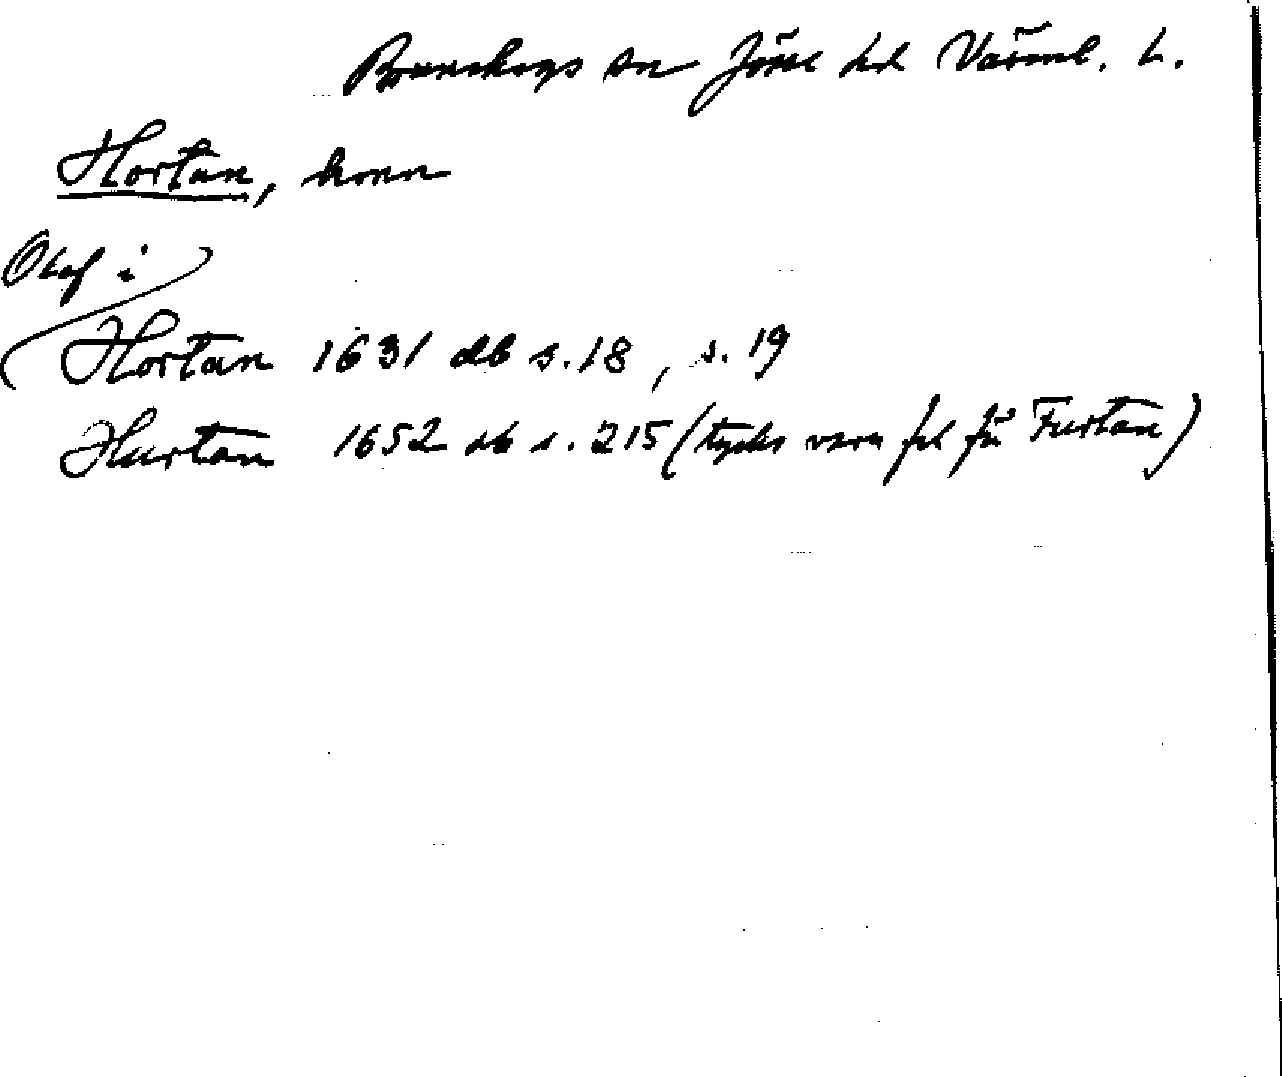 Brunskogs sn Jösse hd Värml. L.
Hortan, hemn
Olof i
Hortan 1631 db s. 18, s. 19
Hurtan 1652 db s. 215 (tycks vara fel för Furtan)